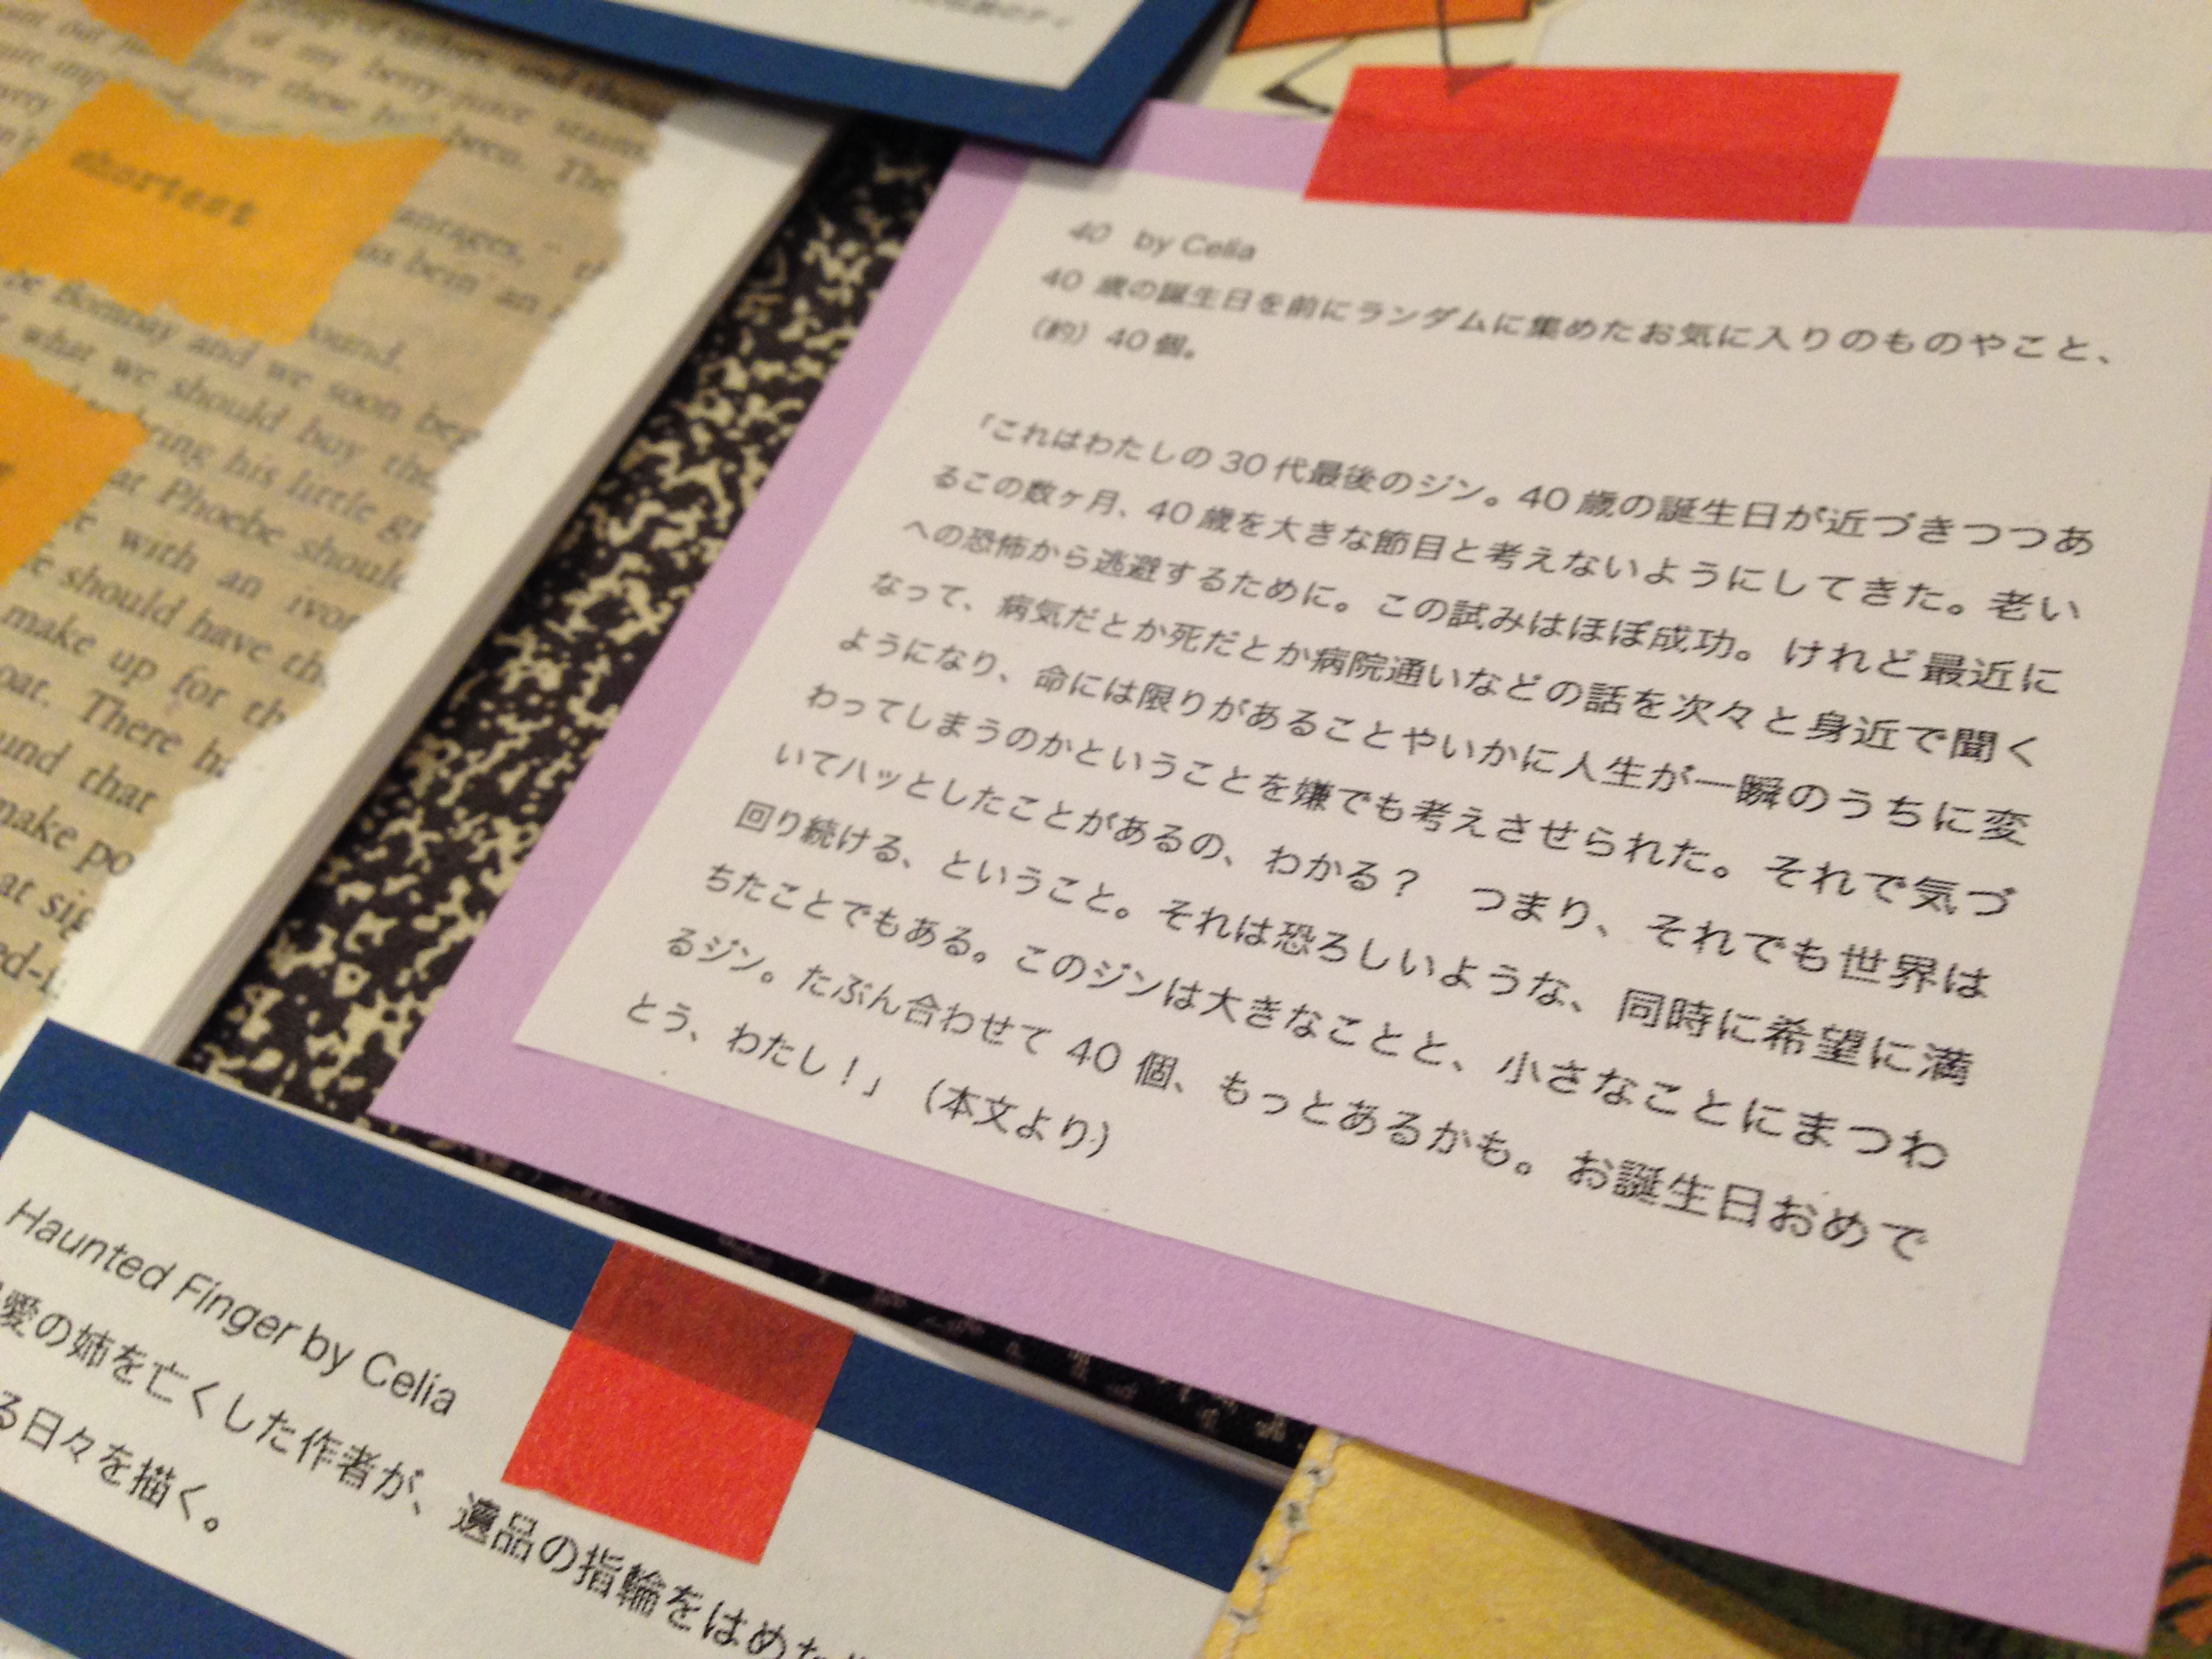 shortest
of my berry-juice stains
been. The
antages,"
as bein' an
be Bombay and we soon
ound.
what we should buy the
bring his little
at Phoebe should
with an ivor
should have the
make up for th
oat. There ha
und that
make po
at sig
40 by Celia
40 歳の誕生日を前にランダムに集めたお気に入りのものやこと、
（約）40 個。
「これはわたしの 30 代最後のジン。40 歳の誕生日が近づきつつあ
るこの数ヶ月、40 歳を大きな節目と考えないようにしてきた。老い
への恐怖から逃避するために。この試みはほぼ成功。けれど最近に
なって、病気だとか死だとか病院通いなどの話を次々と身近で聞く
ようになり、命には限りがあることやいかに人生が一瞬のうちに変
わってしまうのかということを嫌でも考えさせられた。それで気づ
いてハッとしたことがあるの、わかる？　つまり、それでも世界は
回り続ける、ということ。それは恐ろしいような、同時に希望に満
ちたことでもある。このジンは大きなことと、小さなことにまつわ
るジン。たぶん合わせて 40 個、もっとあるかも。お誕生日おめで
とう、わたし！」（本文より）
Haunted Finger by Celia
愛の姉を亡くした作者が、遺品の指輪をはめた
る日々を描く。